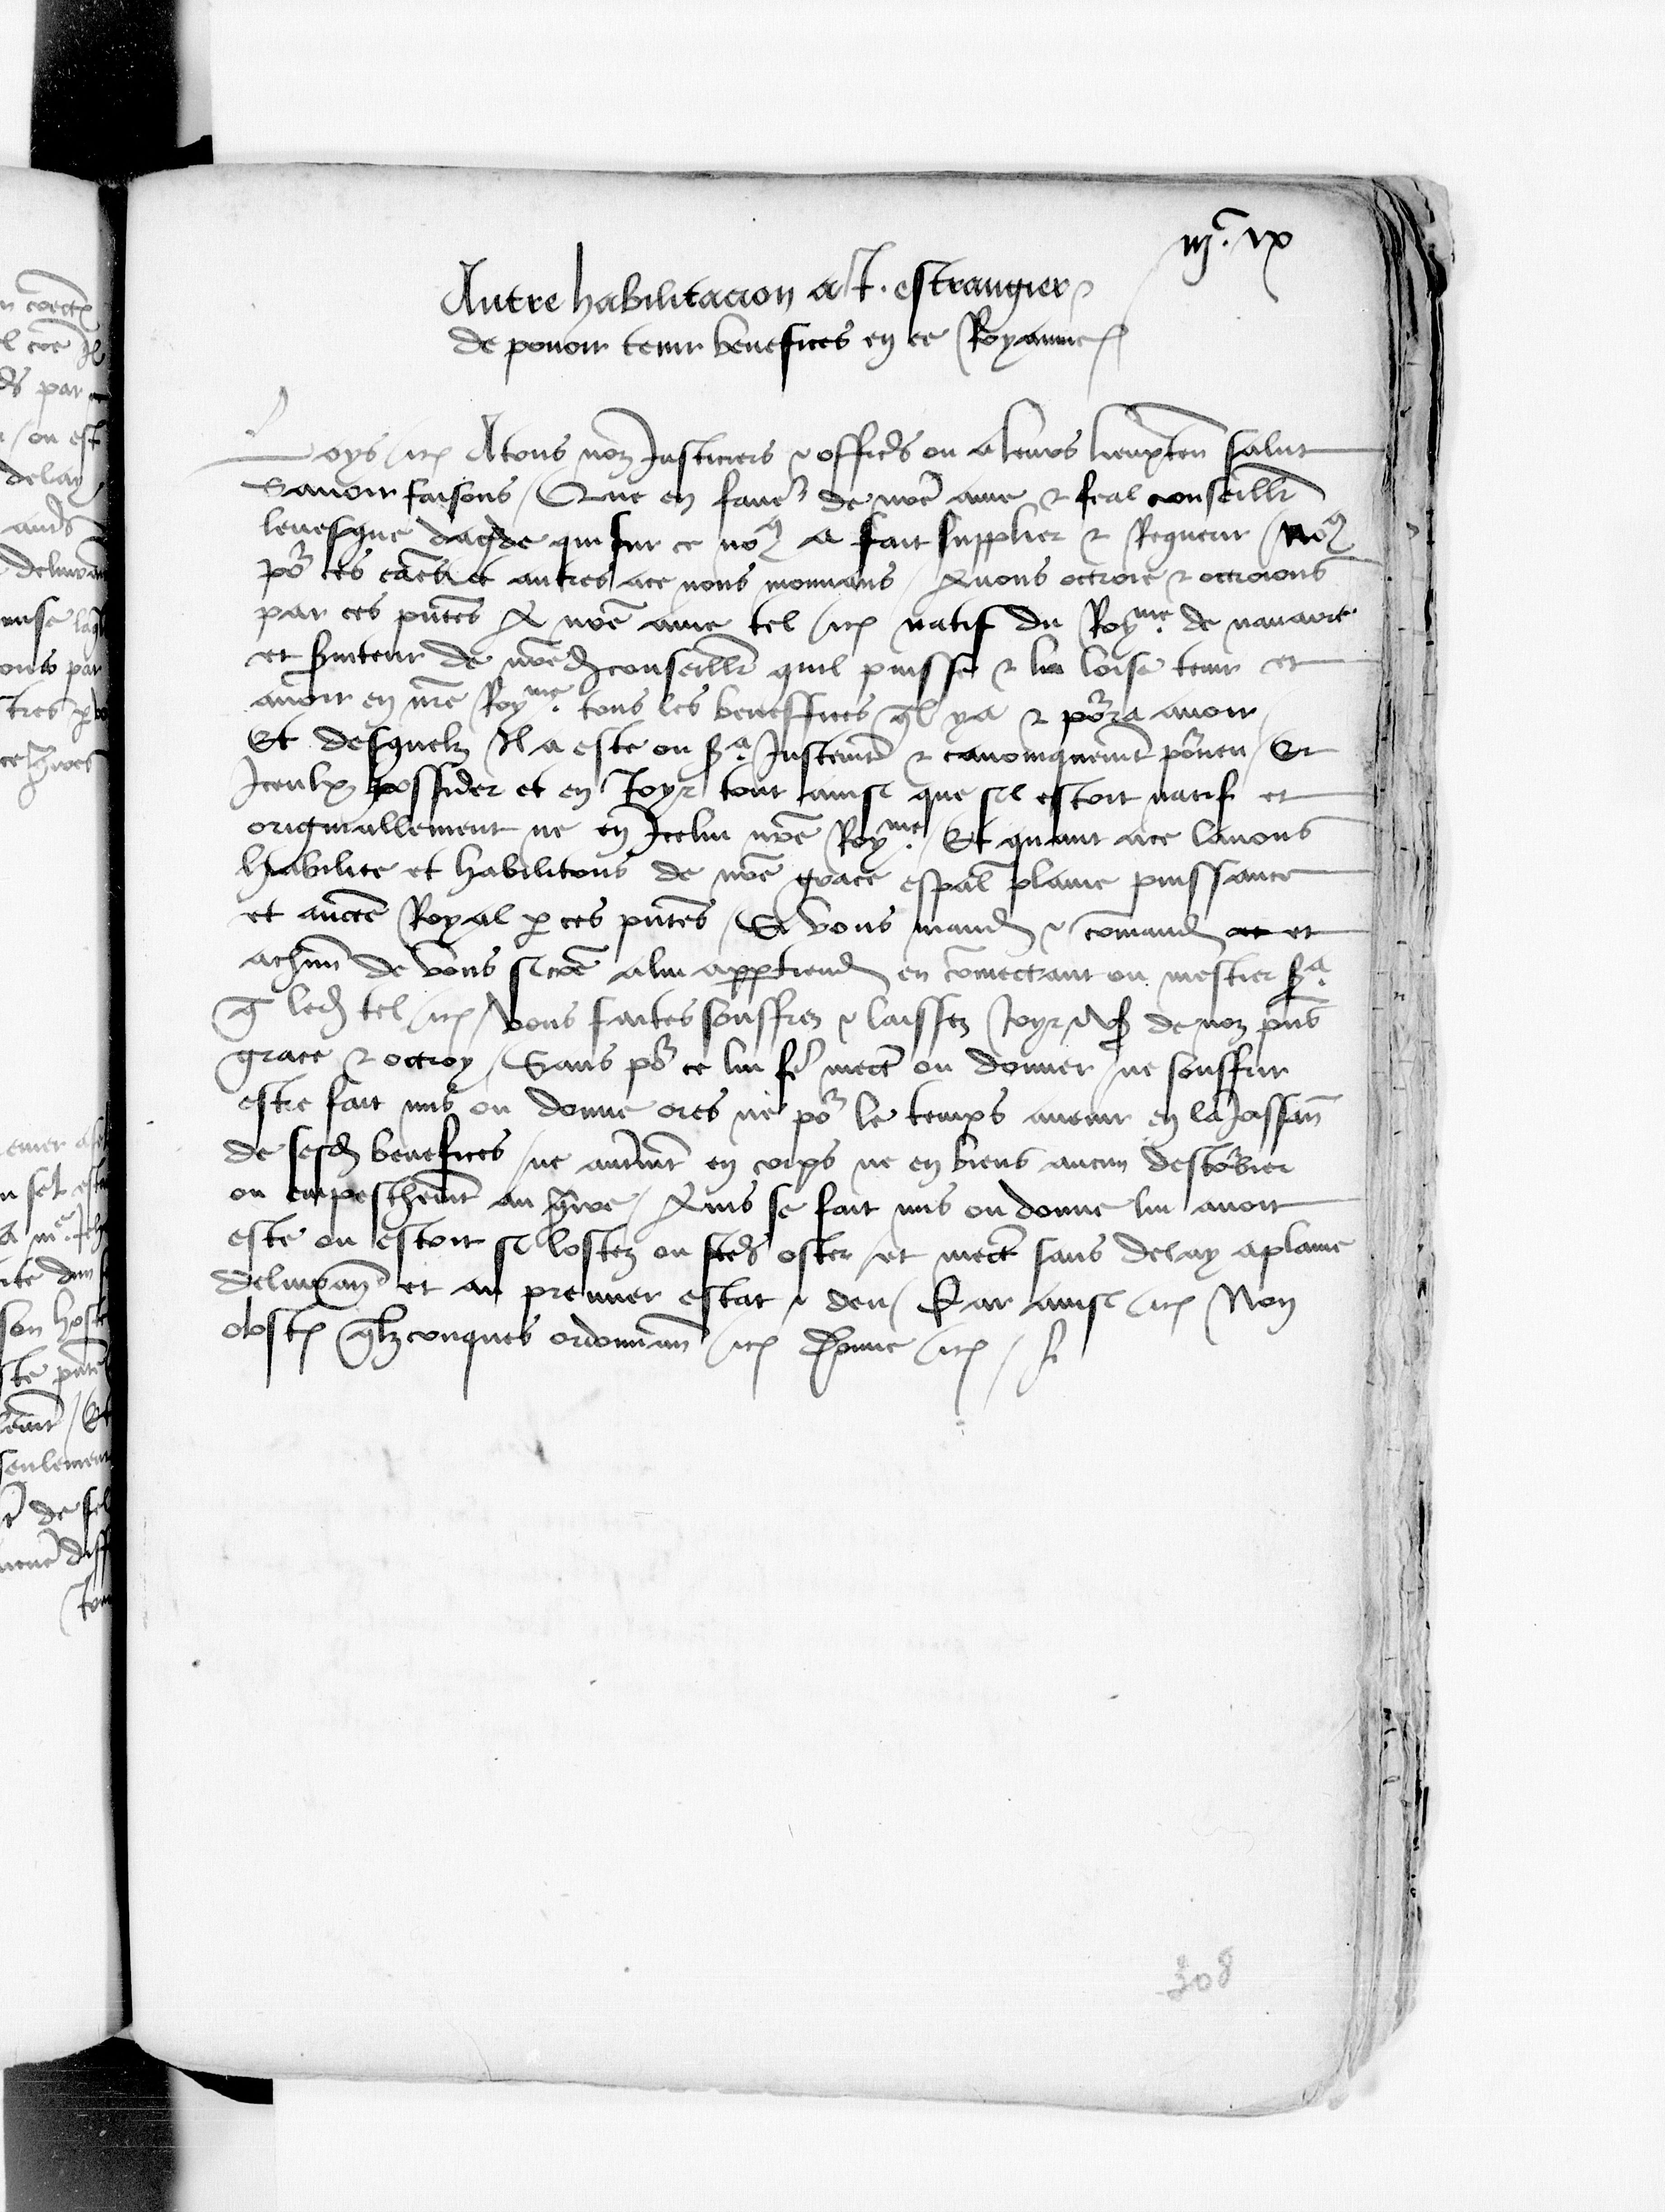 iijc. ix
Autre habilitacion a .I. estrangier
de povoir tenir benefices en ce Royaume
Loys etc A tous noz Justiciers & officrs ou a leurs lieuxten salut
Savoir faisons / Que en faver de nre ame & feal conseillr
levesque dagde qui sur ce no9 a fait supplier & Requerir / No9
por ces causes et autres ace nous mouvans / Avons octroie & octroions
par ces pntes A nre ame tel etc natif du Royme. de navarre
et serviteur de nredit conseillr quil puisse & lui loise tenir et
avoir en nre Royme. tous les beneffices ql ya & porra avoir
Et desquelz Il a este ou sera Justemt & canoniquemt porveu / Et
Iceulx possider et en Joyr tout ainsi que sil estoit natif et
originallement ne en Icelui nre Royme. / Et quant ace lavons
habilite et habilitons de nre grace espal plaine puissance
et aucte Royal p ces pntes / Si vous mand & comand et
achun de vous si coe alui appartiend en comectant ou mestier sera
q led tel etc / vous faites souffrez & laissez Joyr & user de noz pns
grace & octroy / Sans por ce lui fe mect ou donner / ne souffrir
estre fait mis ou donne ores ne por le temps avenir en la Joissan
de sesd benefices / ne autremt en corps ne en biens aucun destorbier
ou empeschemt au contre / Ains se fait mis ou donne lui avoit
este ou estoit si lostez ou ftes oster / et mect sans delay a plaine
delivran et au premier estat & deu / Car ainsi etc Non
obst qlzconques ordonnan etc Donne etc /
308